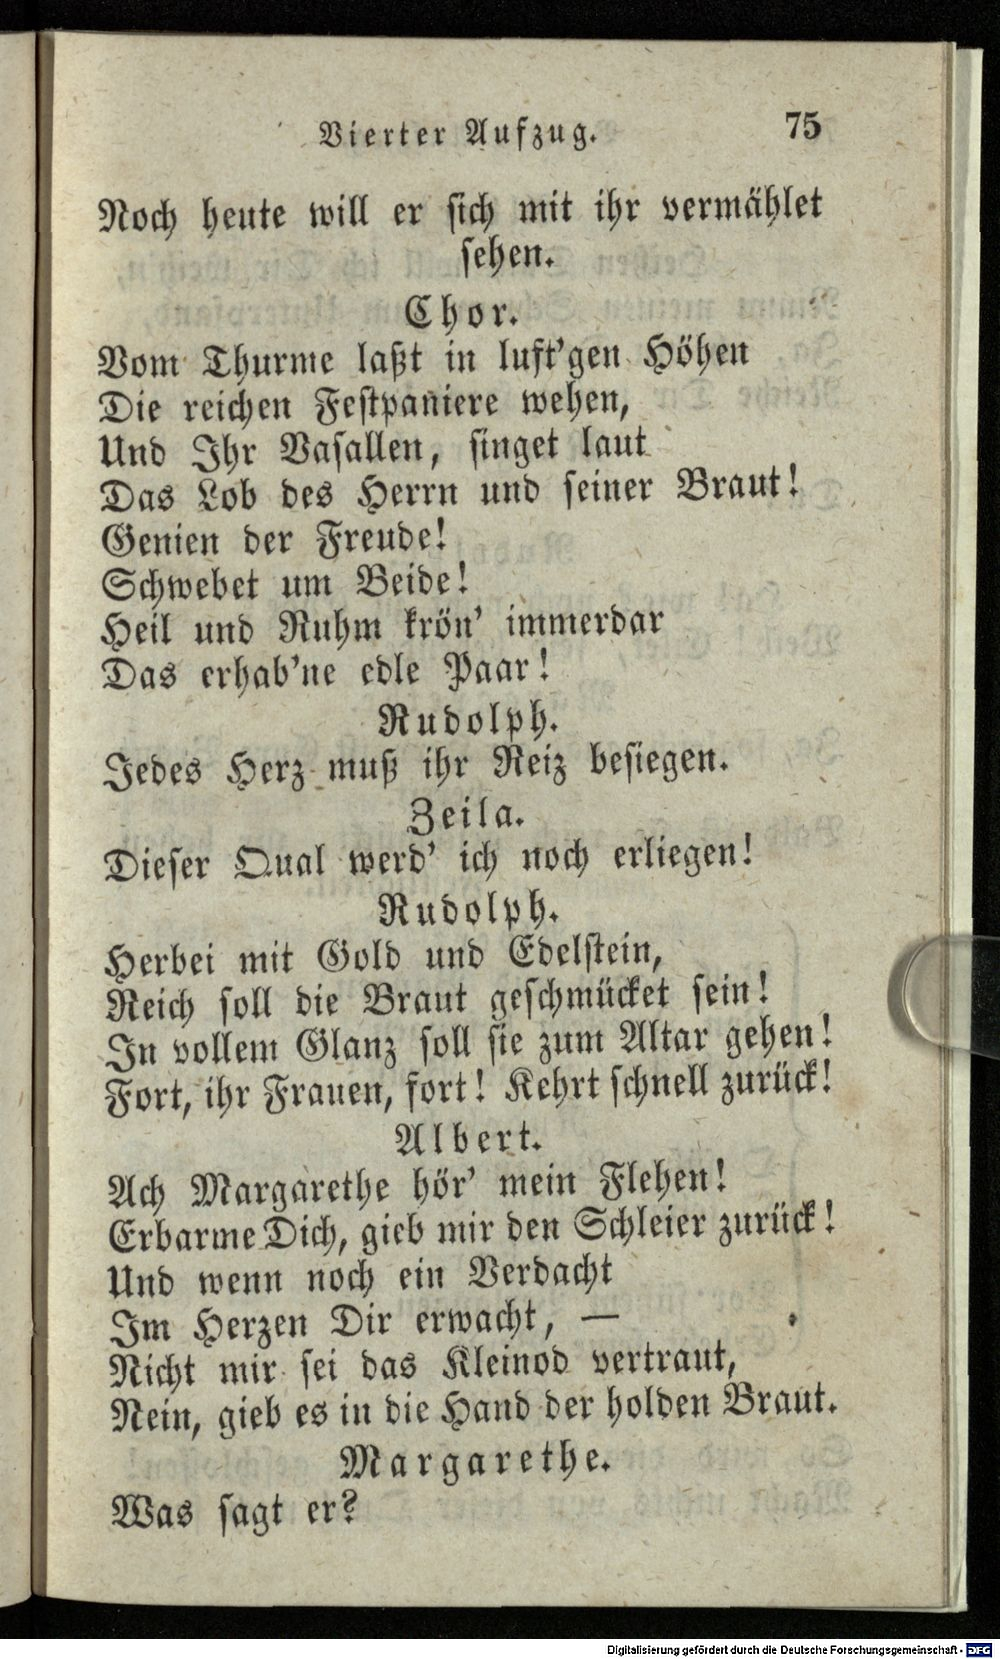 Vierter Aufzug. 75
Noch heute will er sich mit ihr vermählet
sehen.
Chor.
Vom Thurme laßt in luft'gen Höhen
Die reichen Festpaniere wehen,
Und Ihr Vasallen, singet laut
Das Lob des Herrn und seiner Braut!
Genien der Freude!
Schwebet um Beide!
Heil und Ruhm krön' immerdar
Das erhab'ne edle Paar!
Rudolph.
Jedes Herz muß ihr Reiz besiegen.
Zeila.
Dieser Qual werd' ich noch erliegen!
Rudolph.
Herbei mit Gold und Edelstein,
Reich soll die Braut geschmücket sein!
In vollem Glanz soll sie zum Altar gehen!
Fort, ihr Frauen, fort! Kehrt schnell zurück!
Albert.
Ach Margarethe hör' mein Flehen!
Erbarme Dich, gieb mir den Schleier zurück!
Und wenn noch ein Verdacht
Im Herzen Dir erwacht, —
Nicht mir sei das Kleinod vertraut,
Nein, gieb es in die Hand der holden Braut.
Margarethe.
Was sagt er?
Digitalisierung gefördert durch die Deutsche Forschungsgemeinschaft - DFG